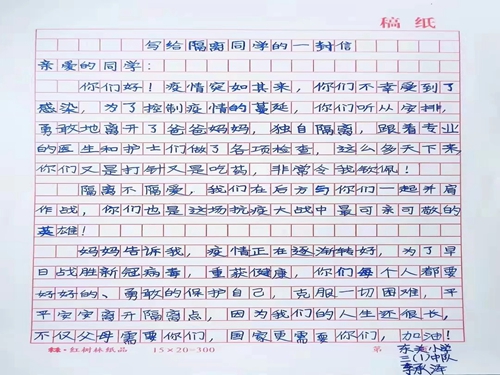 稿纸
写给隔离同学的一封信
亲爱的同学：
你们好！疫情突如其来，你们不幸受到了
感染，为了控制疫情的蔓延，你们听从安排，
勇敢地离开了爸爸妈妈，独自隔离，跟着专业
的医生和护士们做了各项检查，这么多天下来，
你们又是打针又是吃药，非常令我钦佩！
隔离不隔爱，我们在后方与你们一起并肩
作战，你们也是这场抗疫大战中最可亲可敬的
英雄！
妈妈告诉我，疫情正在逐渐转好，为了早
日战胜新冠病毒，重获健康，你们每个人都要
好好的、勇敢的保护自己，克服一切困难，平
平安安离开隔离点，因为我们的人生还很长，
不仅父母需要你们，国家更需要你们，加油！
红树林纸品 15×20=300 第
东关小学
三（1）中队
李承泽